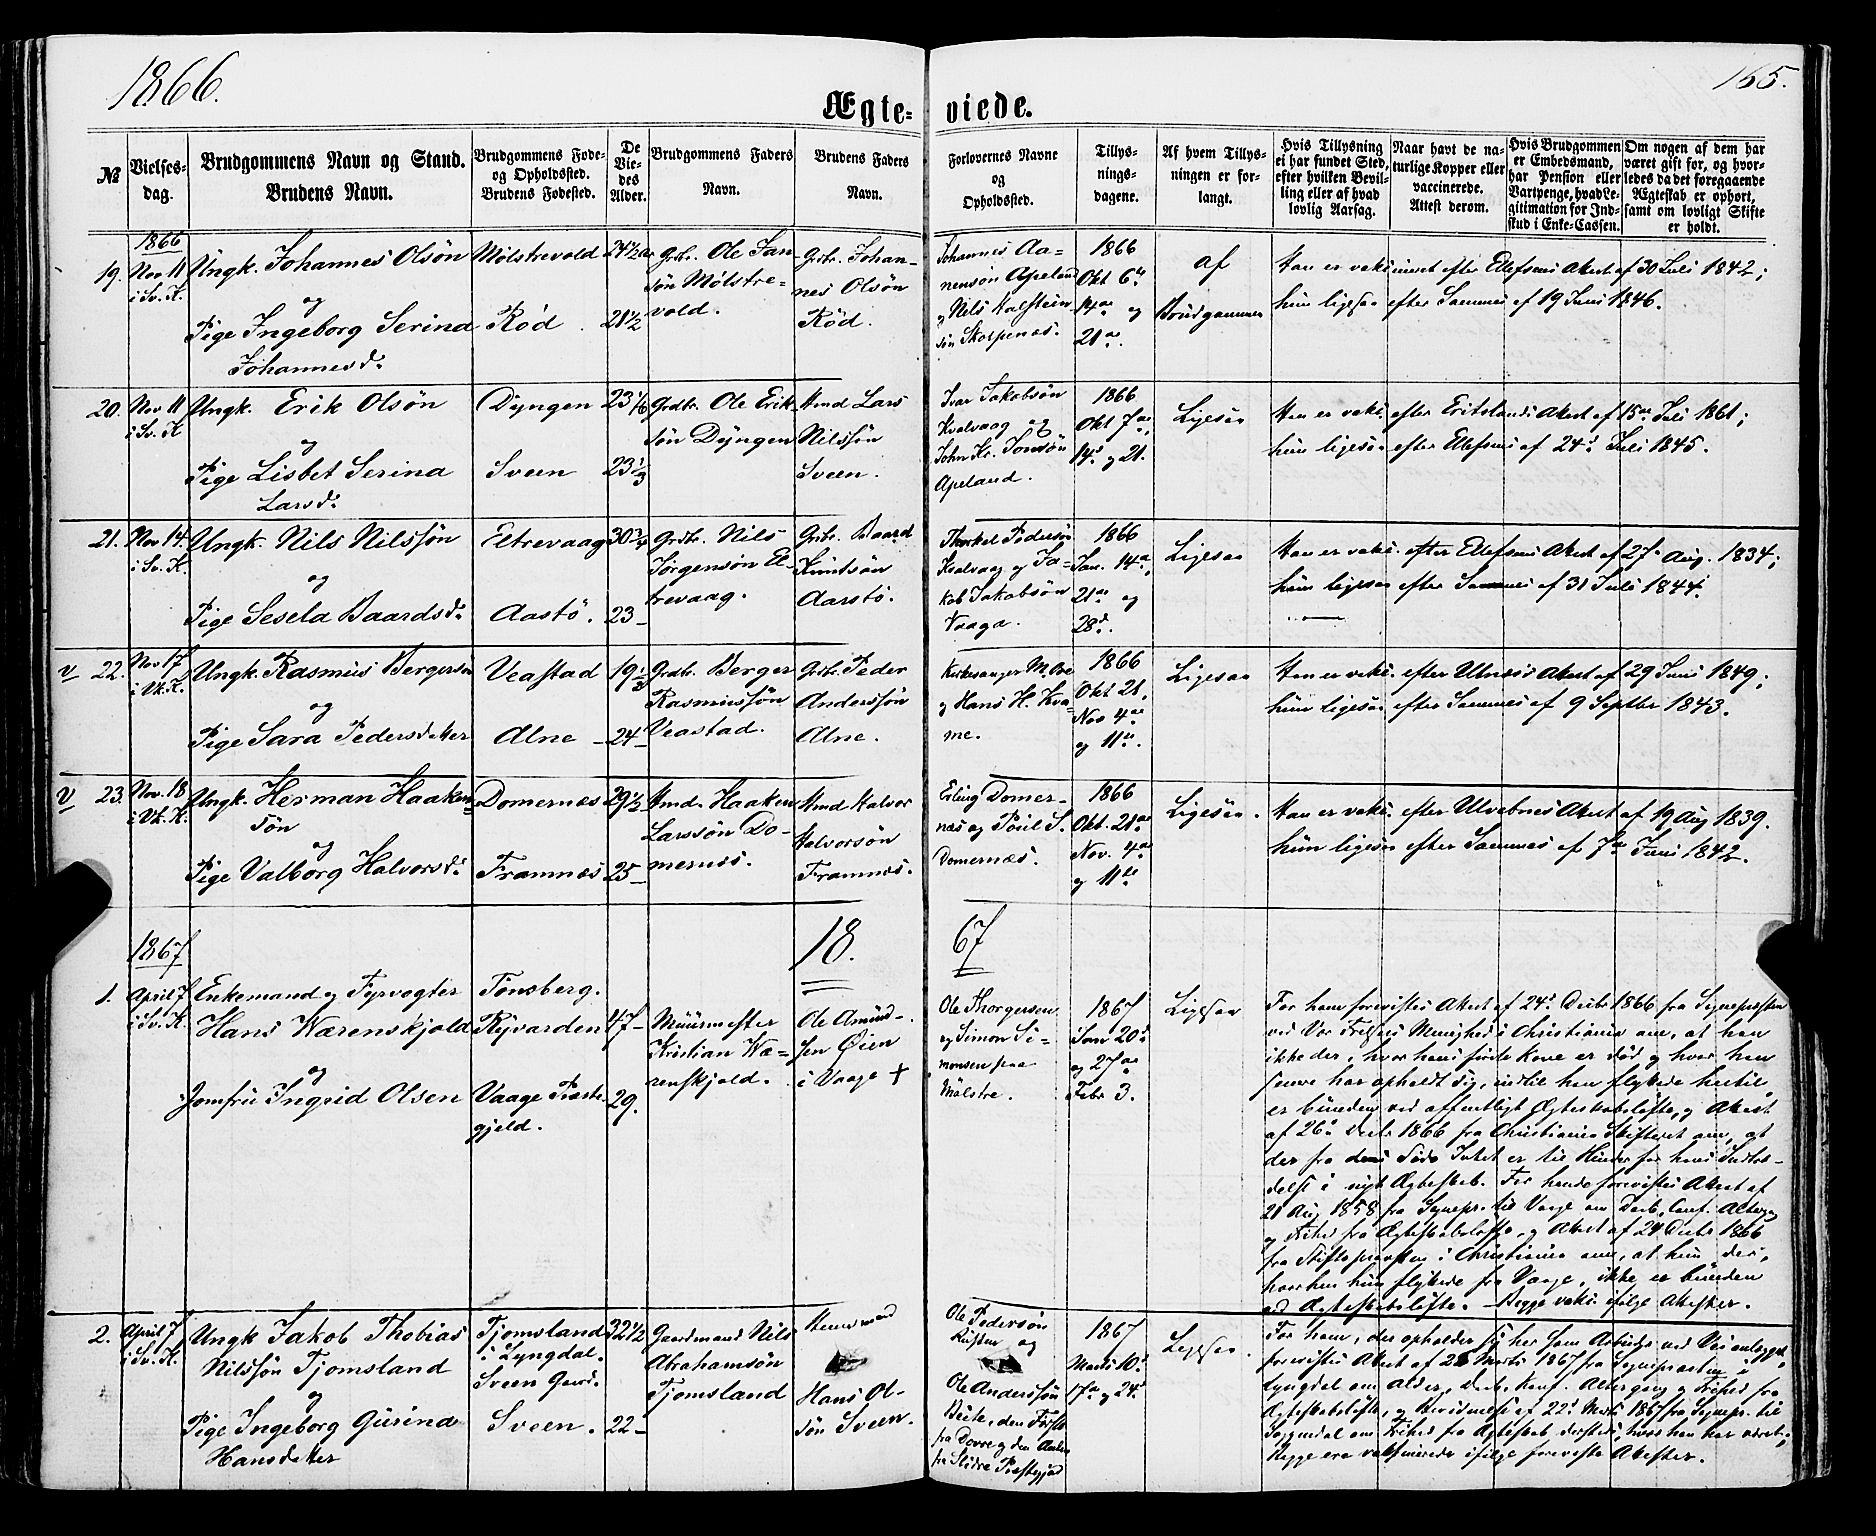 1866.
165.
Ægte-
viede.
№
Vielses-
dag.
Brudgommens Navn og Stand.
Brudens Navn.
Brudgommens Føde-
og Opholdssted.
Brudens Fødested.
De
Vie-
des
Alder.
Brudgommens Faders
Navn.
Brudens Faders
Navn.
Forlovernes Navne
og
Opholdssted.
Tillys-
nings-
dagene.
Af hvem Tillys-
ningen er for-
langt.
Hvis Tillysning
ei har fundet Sted,
efter hvilken Bevil-
ling eller af hvad
lovlig Aarsag.
Naar havt de na-
turlige Kopper eller
vaccinerede.
Attest derom.
Hvis Brudgommen
er Embedsmand,
har Pension eller
Vartpenge, hvad Le-
gitimation for Ind-
skud i Enke-Cassen.
Om nogen af dem har
været gift før, og hvor-
ledes da det foregaaende
Ægteskab er ophørt,
samt om lovligt Skifte
er holdt.
1866
19.
Nov 11
i Sv. K.
Ungk. Johannes Olsön
og
Pige Ingeborg Serina
Johannesd.
Mølstrevold
Röd.
24 1/2
21 1/2
Grdbr. Ole Jan-
sön Mølstre-
vold.
Grdbr. Johan-
nes Olsön
Röd.
Johannes Aa-
nensön Apeland
og Nils Halstein
sön Skolpenæs.
1866
Okt 6
14 og
21.
af
Brudgommen
Han er vaksineret efter Ellefsens Attest af 30 Juli 1842;
hun ligesaa efter Sammes af 19 Juni 1846.
20.
Nov 11
i Sv. K
Ungk. Erik Olsön
og
Pige Lisbet Serina
Larsd.
Dyngen
Sveen
23 1/6
23 1/3
Grdbr. Ole Erik
sön Dyngen
Hmd Lars
Nilssön
Sveen.
Ivar Jakobsön
Kvalvaag og
John Kr. Jonsön
Apeland.
1866
Okt 7
14 og 21.
Ligesaa
Han er vaks. efter Attest af 15 Juli 1861;
hun ligesaa efter Ellefsens af 24 Juli 1845.
21.
Nov 14.
i Sv. K.
Ungk. Nils Nilssön
og
Pige Sesela Baardsd.
Eltrevaag
Aastö.
30 3/4
23
Grdbr. Nils
Jörgensön El-
trevaag.
Grdbr. Baard
Knutsön
Aarstö.
Thorkel Pedersön
Kvalvaag og Ja-
kob Jakobsön
Vaaga.
1866
Jan. 14
21 og
28.
Ligesaa
Han er vaks. efter Ellefsens Attest af 27 Aug. 1834;
hun ligesaa efter Sammes af 31 Juli 1844.
V
22.
Nov 17
i Vk. K.
Ungk. Rasmus Bergersön
og
Pige Sara Pedersdatter
Veastad
Alne
19 1/3
24
Grdbr. Berger
Rasmussön
Veastad.
Grdbr. Peder
Anderssön
Alne.
Kirkesanger M. Ove
og Hans H. Kva-
me.
1866
Okt 21.
Nov 4
og 11.
Ligesaa
Han er vaks. efter Attest af 29 Juni 1849;
hun ligesaa efter Sammes af 9 Septbr 1843.
V
23.
Nov. 18
i Vk. K.
Ungk. Herman Haaken
sön
og
Pige Valborg Halvorsd.
Domernæs
Framnæs
29 1/2
25
Hmd. Haaken
Larssön Do-
mernæs.
Hmd Halvor
Halvorsön
Framnæs.
Erling Domer-
næs og Poul S.
Domernæs.
1866
Okt. 21
Nov. 4
og 11
Ligesaa.
Han er vaks. efter Attest af 19 Aug 1839.
hun ligesaa efter Sammes af 7 Juni 1842.
1867
18.
67
1.
April 7
i Sv. K.
Enkemand og Fyrvogter
Hans Wærenskjold
og
Jomfru Ingrid Olsen
Tönsberg.
Ryvarden
Vaage Præste
gjeld.
47
29.
Muurmester
Kristian Wæ-
renskjold.
Ole Amund-
sen Øien
i Vaage +
Ole Thorgersen
og Simon Si-
monsen paa
Mölstre.
1867
Jan 20
og 27
Febr 3.
Ligesaa
For ham forevistes Attest af 24 Decbr 1866 fra Sognepresten
ved Vor Frelsers Menighed i Christiania om, at han
ikke der, hvor hans første Kone er död og hvor han
senere har opholdt sig, indtil han flyttede hertil,
er bunden ved offentligt Ægteskabslöfte, og Attest
af 26 Decbr 1866 fra Christiania Skifteret om, at
der fra dens Side Intet er til Hinder for hans Indtræ-
delse i nyt Ægteskab. For hende forevistes Attest af
21 Aug 1858 fra Sognepr. til Vaage om Daab, Conf. Alterg.
og Frihed fra Ægteskabslöfte, og Attest af 24 Decbr 1866
fra Stiftsprovsten i Christiania om, at hun der,
hvorhen hun flyttede fra Vaage, ikke er bunden
ved Ægteskabslöfte. Begge vaks. ifölge Attester.
2.
April 7
i Sv. K.
Ungk Jakob Thobias
Nilssön Tjomsland
og
Pige Ingeborg Gurina
Hansdatter
Tjomsland
i Lyngdal.
Sveen Gaard.
Sveen.
32 1/2
22
Gaardmand Nils
Abrahamsön
Tjomsland
Huusmand
Hans Ol-
sön Sveen.
Ole Pedersön
og
Ole Anderssön
den Første
fra Dovre og den Anden
fra Slidre Præstegjeld
1867
Marts 10
17 og 24
Ligesaa.
For ham, der opholder sig her som Arbeider ved Veianlægget,
forevistes Attest af 2 Marts 1867 fra Sognepræsten i
Lyngdal om Alder, Daab, Konf. Altergang og Frihed fra
Ægteskabslöfte, og Bevidnelse af 22 Marts 1867 fra Sognepr. til
Soggendal om Frihed fra Ægteskab dersteds, hvor han har været.
Begge ere vaksinerede ifölge foreviste Attester.